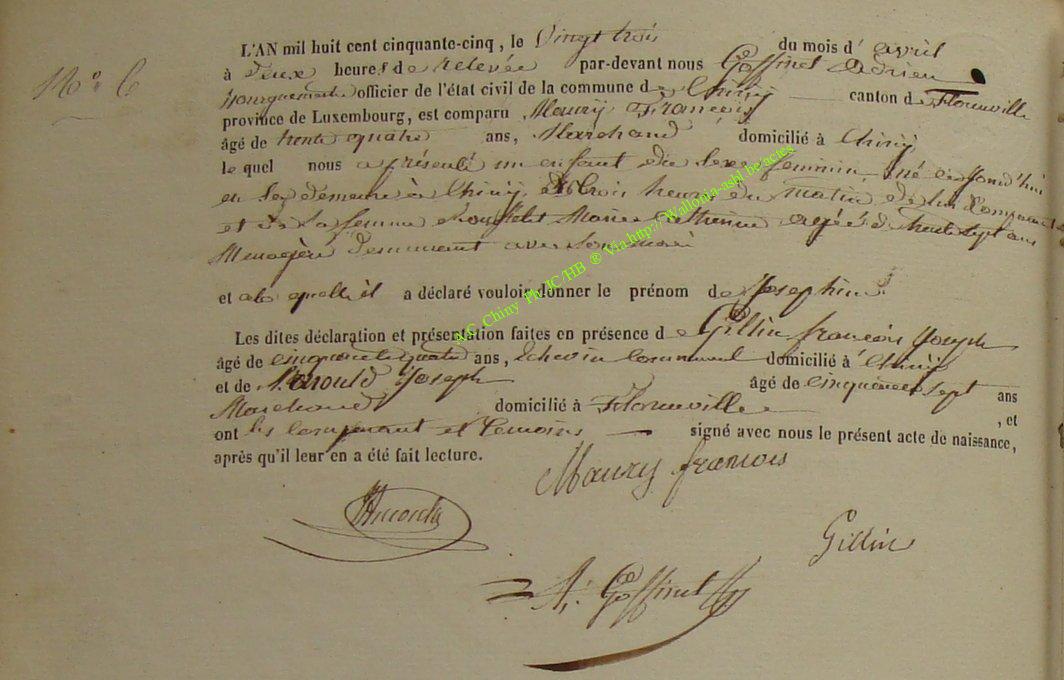 N° 6
L'AN mil huit cent cinquante-cinq, le Vingt trois du mois d' avril
à deux heures de relevée par-devant nous Goffinet Adrien
Bourguemestre officier de l'état civil de la commune de Chiny canton de Florenville
province de Luxembourg, est comparu Maury François
âgé de trente quatre ans, Marchand domicilié à Chiny
le quel nous a présenté un enfant du sexe feminin né ce jourd'hui
en sa demeure à Chiny, à trois heures du matin de lui Comparant
et de sa femme Marie Catherine agée de trente sept ans
Menagère demeurant avec son mari
et a déclaré vouloir donner le prénom de Josephine
Les dites déclaration et présentation faites en présence de Gillin françois Joseph
âgé de cinquante quatre ans, Echevin Communal domicilié à Chiny
et de Arnould Joseph âgé de cinquante sept ans
Marchand domicilié à Florenville , et
ont les Comparant et temoins signé avec nous le présent acte de naissance,
après qu'il leur en a été fait lecture.
Maury francois
JArnould
Gillin
A. Goffinet
A.C. Chiny Ph JC/HB ® Via http://Wallonia-asbl be/actes